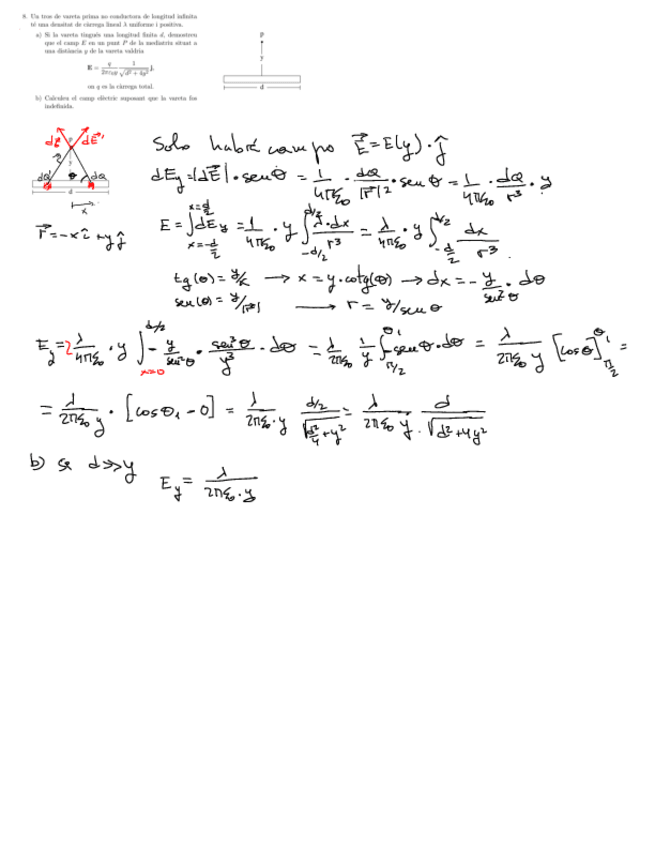 8. Un tros de vareta prima no conductora de longitud infinita
té una densitat de càrrega lineal λ uniforme i positiva.
a) Si la vareta tingués una longitud finita d, demostreu
que el camp E en un punt P de la mediatriu situat a
una distància y de la vareta valdria
E = q/(2πε₀y) 1/√(d² + 4y²) j,
on q es la càrrega total.
b) Calculeu el camp elèctric suposant que la vareta fos
indefinida.
P
y
d
dE⃗ dE⃗'
r⃗ y
dQ θ dQ
d
x
r⃗ = -x î + y ĵ
Solo habrá campo E⃗ = E(y) · ĵ
dEy = |dE⃗| · senθ = 1/(4πε₀) · dQ/|r⃗|² · senθ = 1/(4πε₀) · dQ/r³ · y
E = ∫_{x=-d/2}^{x=d/2} dEy = 1/(4πε₀) · y ∫_{-d/2}^{d/2} λ·dx/r³ = λ/(4πε₀) · y ∫_{-d/2}^{d/2} dx/r³
tg(θ) = y/x → x = y·cotg(θ) → dx = - y/sen²θ · dθ
sen(θ) = y/|r⃗| → r = y/senθ
Ey = 2 λ/(4πε₀) · y ∫_{x=0}^{d/2} - y/sen²θ · sen³θ/y³ · dθ = λ/(2πε₀) 1/y ∫_{π/2}^{θ₁} -senθ·dθ = λ/(2πε₀ y) [cosθ]_{π/2}^{θ₁} =
= λ/(2πε₀ y) · [cosθ₁ - 0] = λ/(2πε₀·y) (d/2)/√(d²/4 + y²) = λ/(2πε₀ y) · d/√(d² + 4y²)
b) si d>>y
Ey = λ/(2πε₀·y)